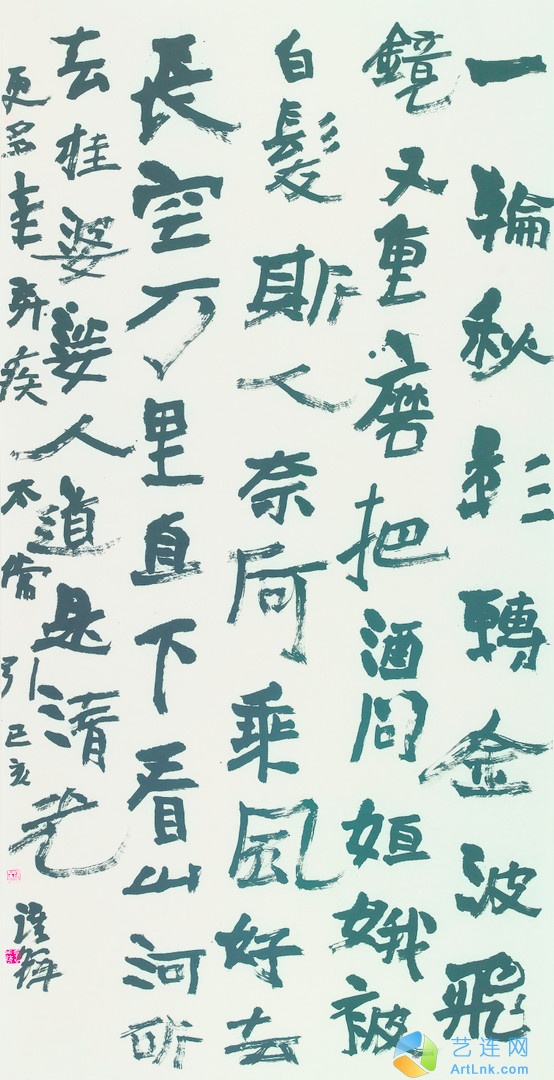 一輪秋影轉金波飛
鏡又重磨把酒問姮娥被
白髮斯人奈何乘風好去
長空万里直下看山河斫
去桂婆娑人道是清光
更多辛弃疾太常引己亥
艺连网
ArtLnk.com